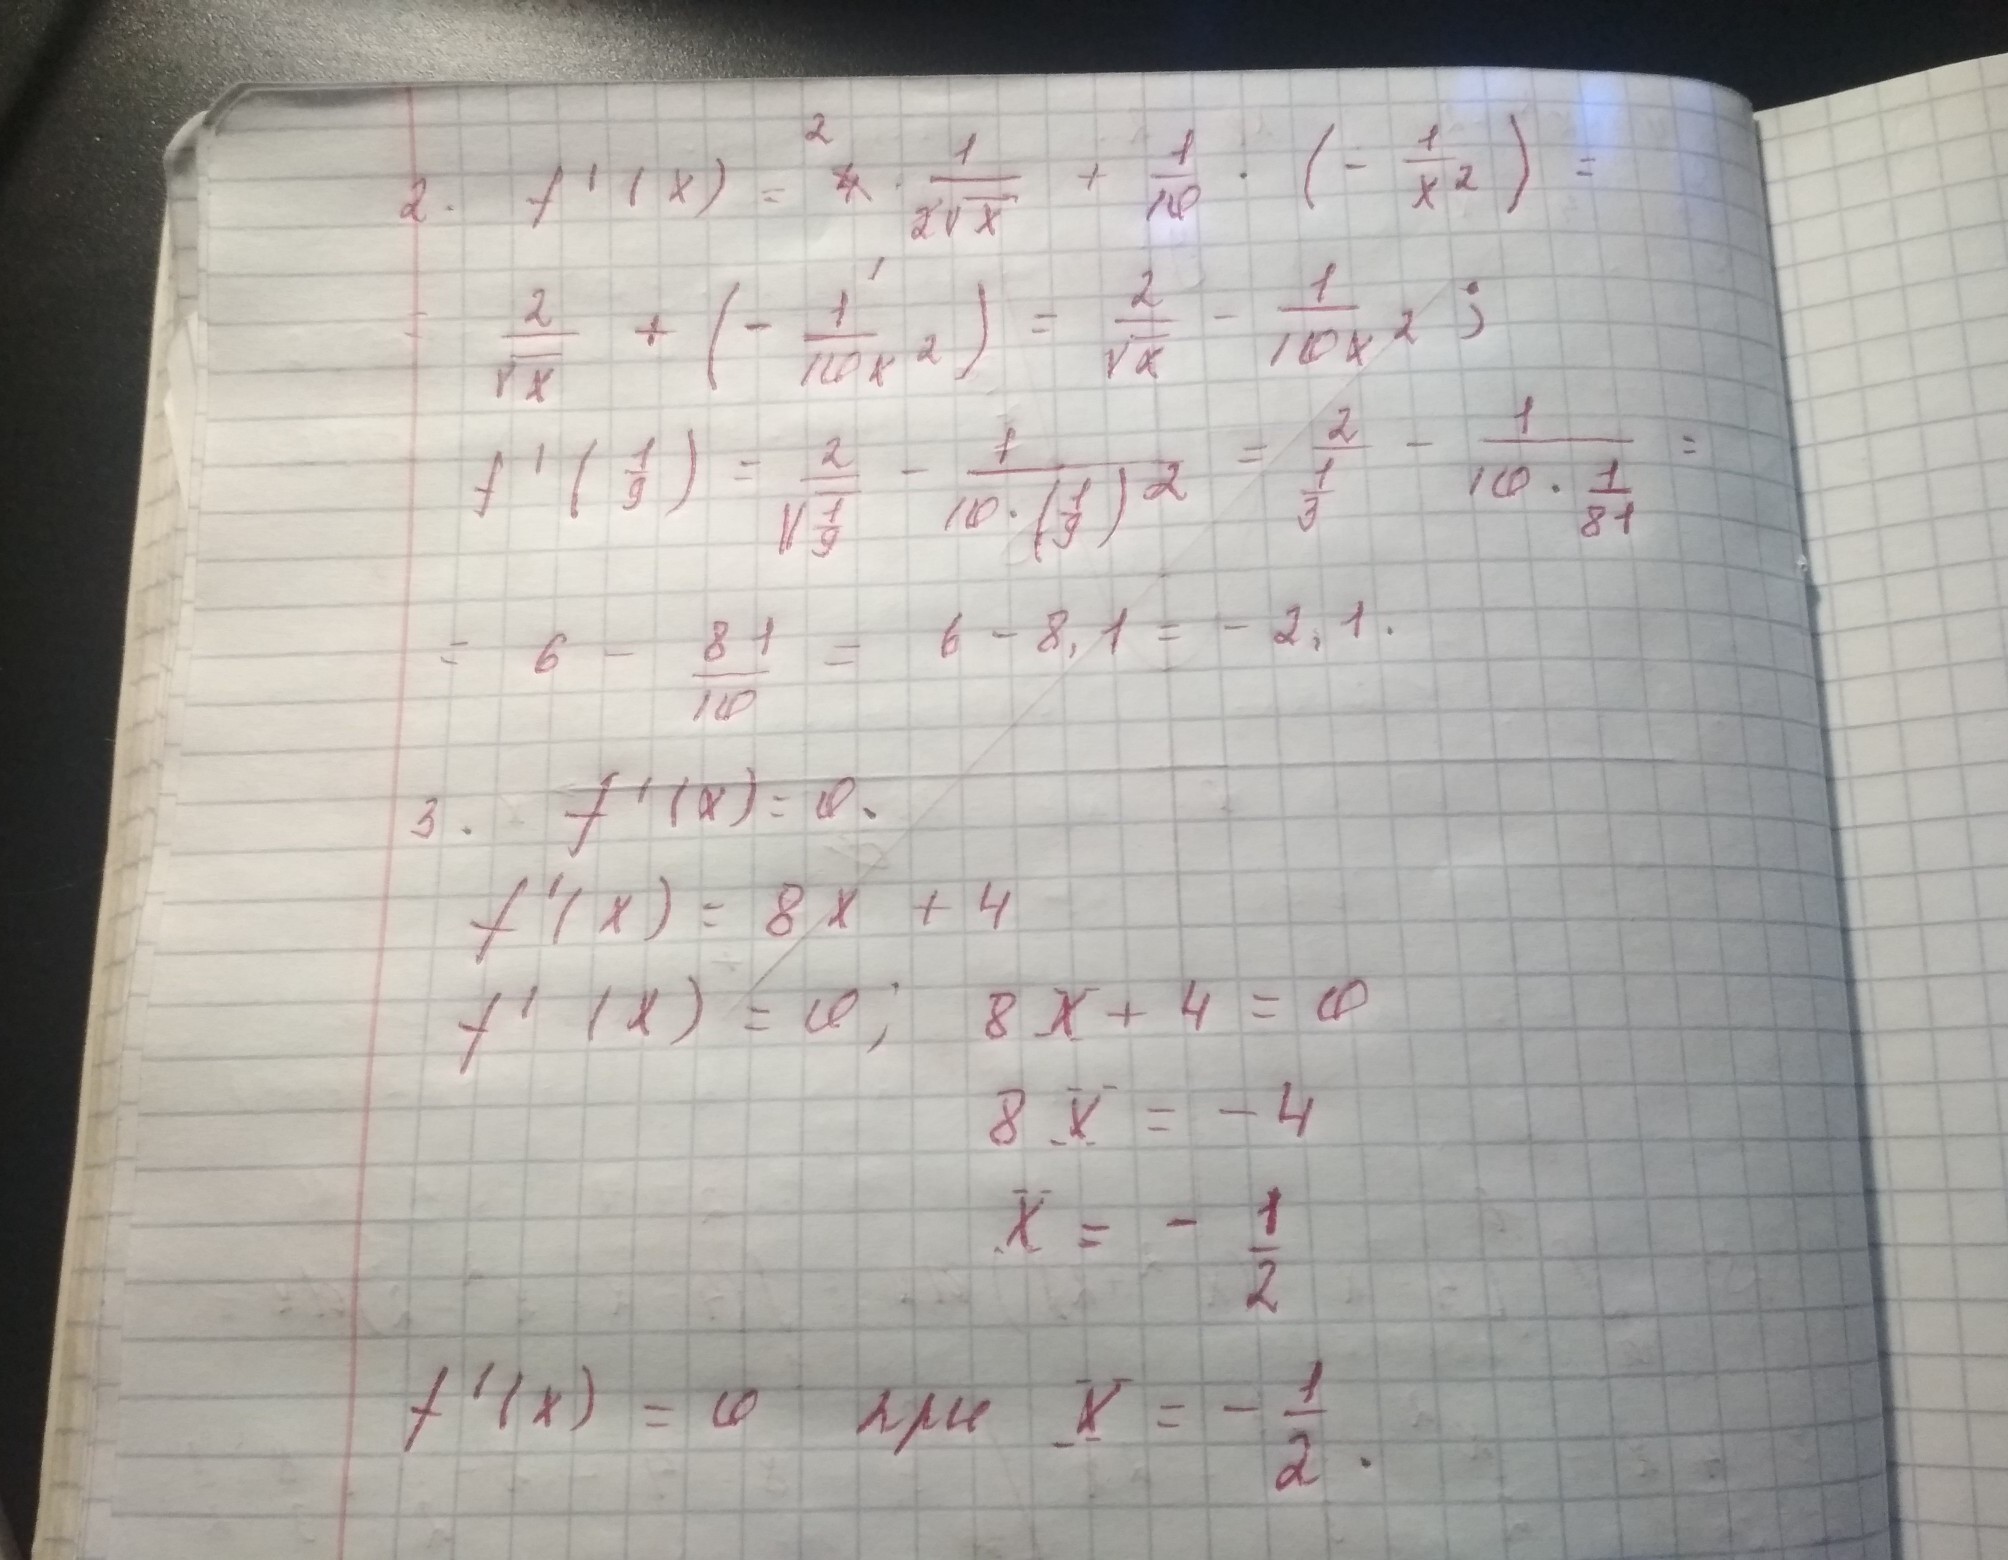 2. f'(x) = 4² · 1/(2√x) + 1/10 · (- 1/x²) =
= 2/√x + (- 1/(10x²))' = 2/√x - 1/(10x²) ;
f'(1/9) = 2/√(1/9) - 1/(10·(1/9)²) = 2/(1/3) - 1/(10 · 1/81) =
= 6 - 81/10 = 6 - 8,1 = - 2,1.
3. f'(x) = 0.
f'(x) = 8x + 4
f'(x) = 0; 8x + 4 = 0
8x = - 4
x = - 1/2
f'(x) = 0 при x = - 1/2.